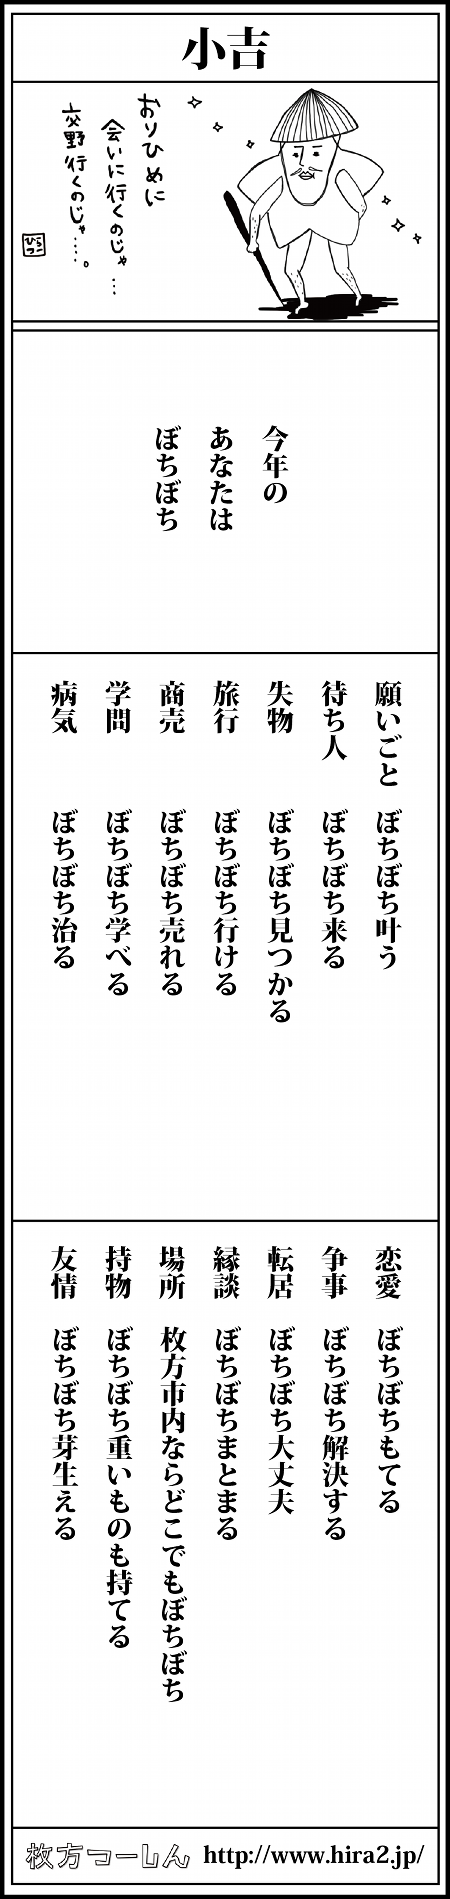 小吉
おりひめに
会いに行くのじゃ…
交野行くのじゃ…。
ひらつー
今年の
あなたは
ぼちぼち
願いごと　ぼちぼち叶う
待ち人　ぼちぼち来る
失物　ぼちぼち見つかる
旅行　ぼちぼち行ける
商売　ぼちぼち売れる
学問　ぼちぼち学べる
病気　ぼちぼち治る
恋愛　ぼちぼちもてる
争事　ぼちぼち解決する
転居　ぼちぼち大丈夫
縁談　ぼちぼちまとまる
場所　枚方市内ならどこでもぼちぼち
持物　ぼちぼち重いものも持てる
友情　ぼちぼち芽生える
枚方つーしん http://www.hira2.jp/